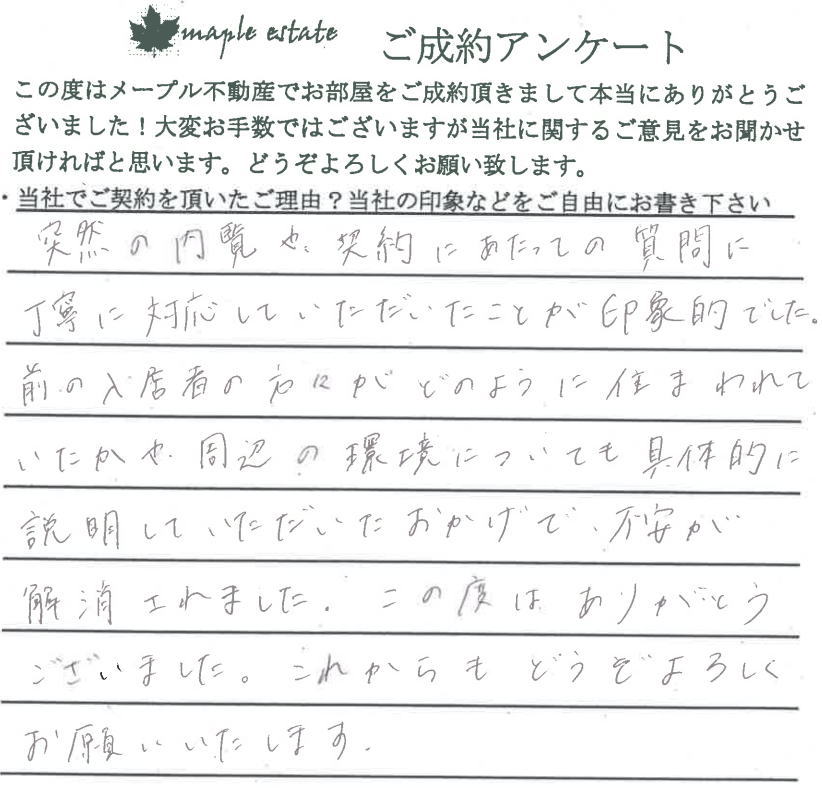 maple estate
ご成約アンケート
この度はメープル不動産でお部屋をご成約頂きまして本当にありがとうご
ざいました！大変お手数ではございますが当社に関するご意見をお聞かせ
頂ければと思います。どうぞよろしくお願い致します。
・当社でご契約を頂いたご理由？当社の印象などをご自由にお書き下さい
突然の内覧や、契約にあたっての質問に
丁寧に対応していただいたことが印象的でした。
前の入居者の方々がどのように住まわれて
いたかや周辺の環境についても具体的に
説明していただいたおかげで、不安が
解消されました。この度はありがとう
ございました。これからもどうぞよろしく
お願いいたします。